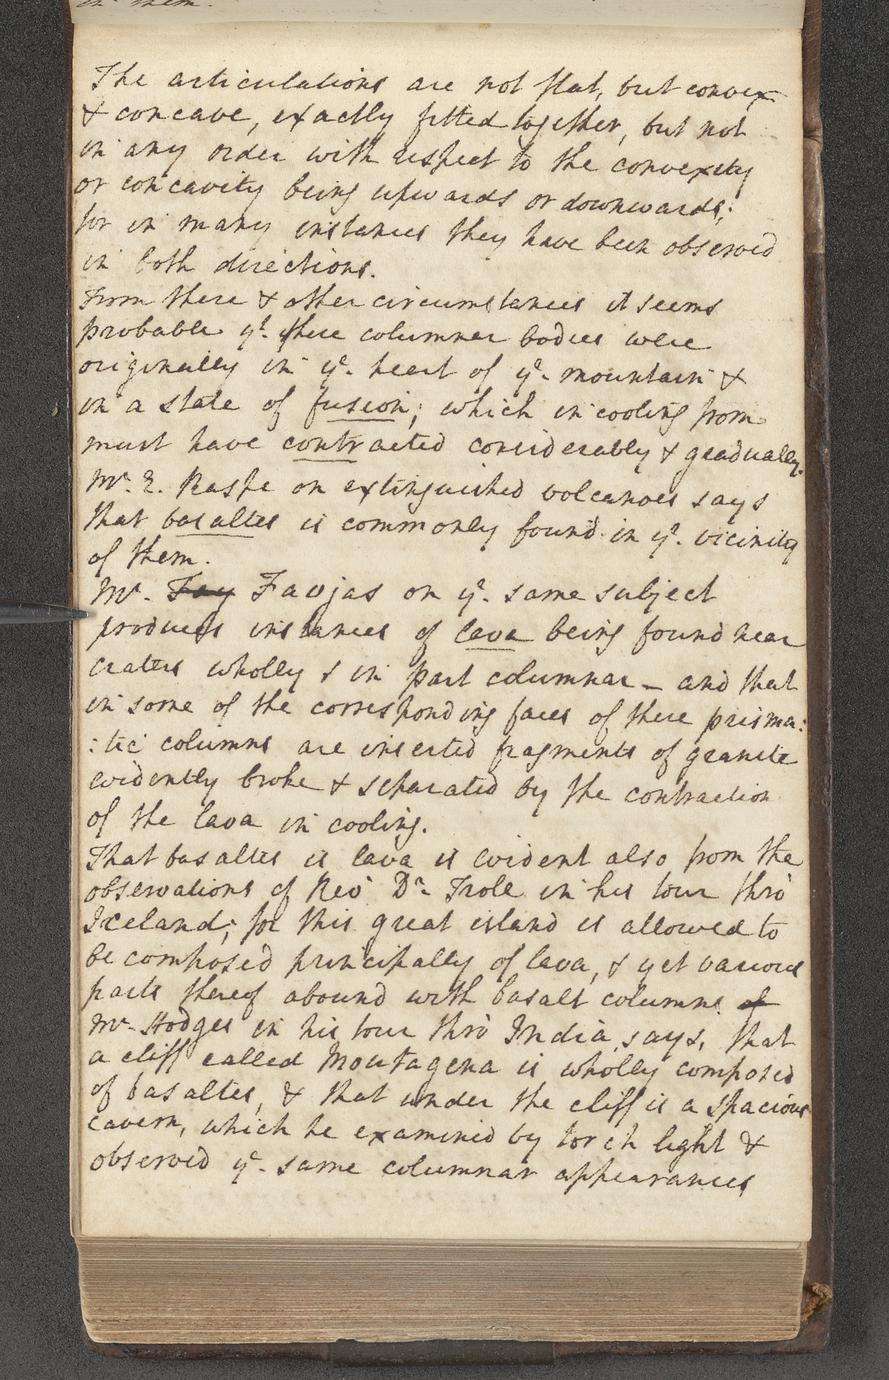 The articulations are not flat, but convex
& concave, exactly fitted together, but not
in any order with respect to the convexity
or concavity being upwards or downwards;
for in many instances they have been observed
in both directions.
From these & other circumstances it seems
probable yt. these columnar bodies were
originally in ye. heart of ye. mountain &
in a state of fusion; which in cooling from
must have contracted considerably & gradually.
Mr. R. Raspe on extinguished volcanoes says
that basaltes is commonly found in ye. vicinity
of them.
Mr. Fay Faujas on ye. same subject
produces instances of lava being found near
craters wholly & in part columnar – and that
in some of the corresponding faces of these prisma:
:tic columns are inserted fragments of granite
evidently broke & separated by the contraction
of the lava in cooling.
That basaltes is lava is evident also from the
observations of Revd Dr. Trole in his tour thro'
Iceland; for this great island is allowed to
be composed principally of lava, & yet various
parts thereof abound with basalt columns of
Mr. Hodges in his tour thro' India, says, that
a cliff called Moutagena is wholly composed
of basaltes, & that under the cliff is a spacious
cavern, which he examined by torch light &
observed ye. same columnar appearances